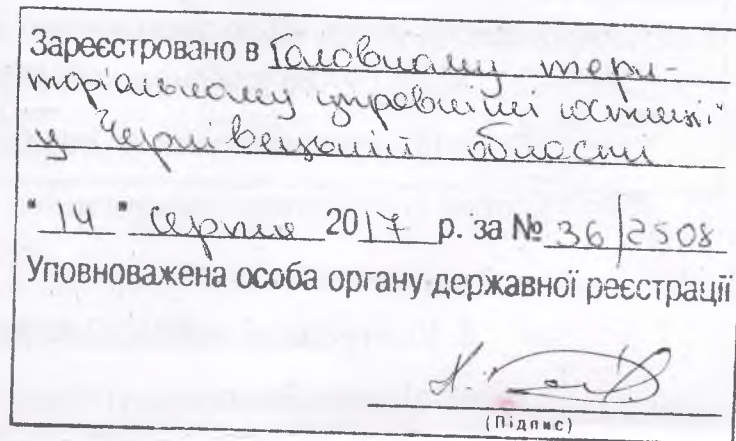 Зареєстровано в Головному тери-
торіальному управлінні юстиції
у Чернівецькій області
"14" серпня 2017 р. за № 36/2508
Уповноважена особа органу державної реєстрації
(Підпис)